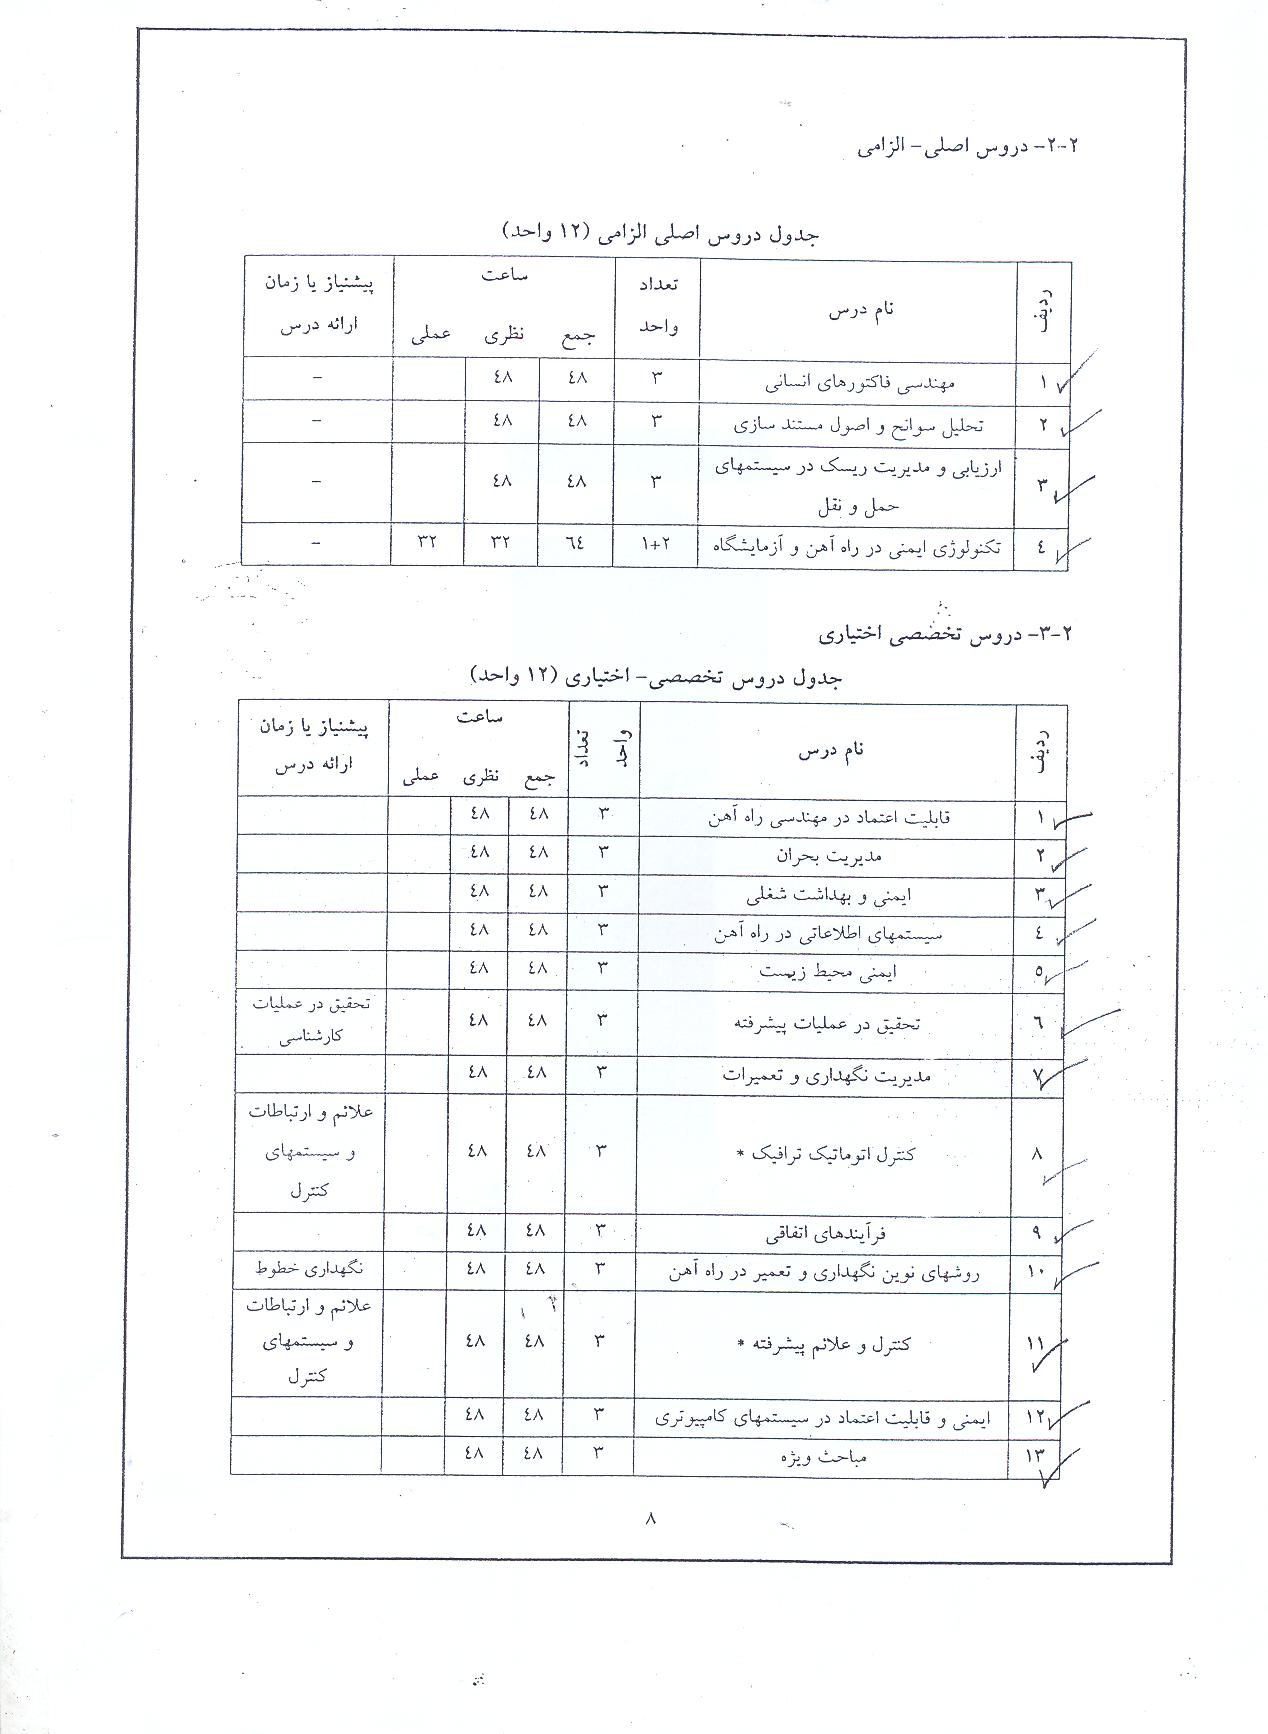 ۲-۲- دروس اصلی- الزامی
جدول دروس اصلی الزامی (۱۲ واحد)
ردیف نام درس تعداد واحد ساعت پیشنیاز یا زمان ارائه درس
جمع نظری عملی
۱ مهندسی فاکتورهای انسانی ۳ ٤۸ ٤۸ –
۲ تحلیل سوانح و اصول مستند سازی ۳ ٤۸ ٤۸ –
۳ ارزیابی و مدیریت ریسک در سیستمهای حمل و نقل ۳ ٤۸ ٤۸ –
٤ تکنولوژی ایمنی در راه آهن و آزمایشگاه ۱+۲ ٦٤ ۳۲ ۳۲ –
۳-۲- دروس تخصصی اختیاری
جدول دروس تخصصی- اختیاری (۱۲ واحد)
ردیف نام درس تعداد واحد ساعت پیشنیاز یا زمان ارائه درس
جمع نظری عملی
۱ قابلیت اعتماد در مهندسی راه آهن ۳ ٤۸ ٤۸
۲ مدیریت بحران ۳ ٤۸ ٤۸
۳ ایمنی و بهداشت شغلی ۳ ٤۸ ٤۸
٤ سیستمهای اطلاعاتی در راه آهن ۳ ٤۸ ٤۸
٥ ایمنی محیط زیست ۳ ٤۸ ٤۸
٦ تحقیق در عملیات پیشرفته ۳ ٤۸ ٤۸ تحقیق در عملیات کارشناسی
۷ مدیریت نگهداری و تعمیرات ۳ ٤۸ ٤۸
۸ کنترل اتوماتیک ترافیک * ۳ ٤۸ ٤۸ علائم و ارتباطات و سیستمهای کنترل
۹ فرآیندهای اتفاقی ۳ ٤۸ ٤۸
۱۰ روشهای نوین نگهداری و تعمیر در راه آهن ۳ ٤۸ ٤۸ نگهداری خطوط
۱۱ کنترل و علائم پیشرفته * ۳ ٤۸ ٤۸ علائم و ارتباطات و سیستمهای کنترل
۱۲ ایمنی و قابلیت اعتماد در سیستمهای کامپیوتری ۳ ٤۸ ٤۸
۱۳ مباحث ویژه ۳ ٤۸ ٤۸
۸